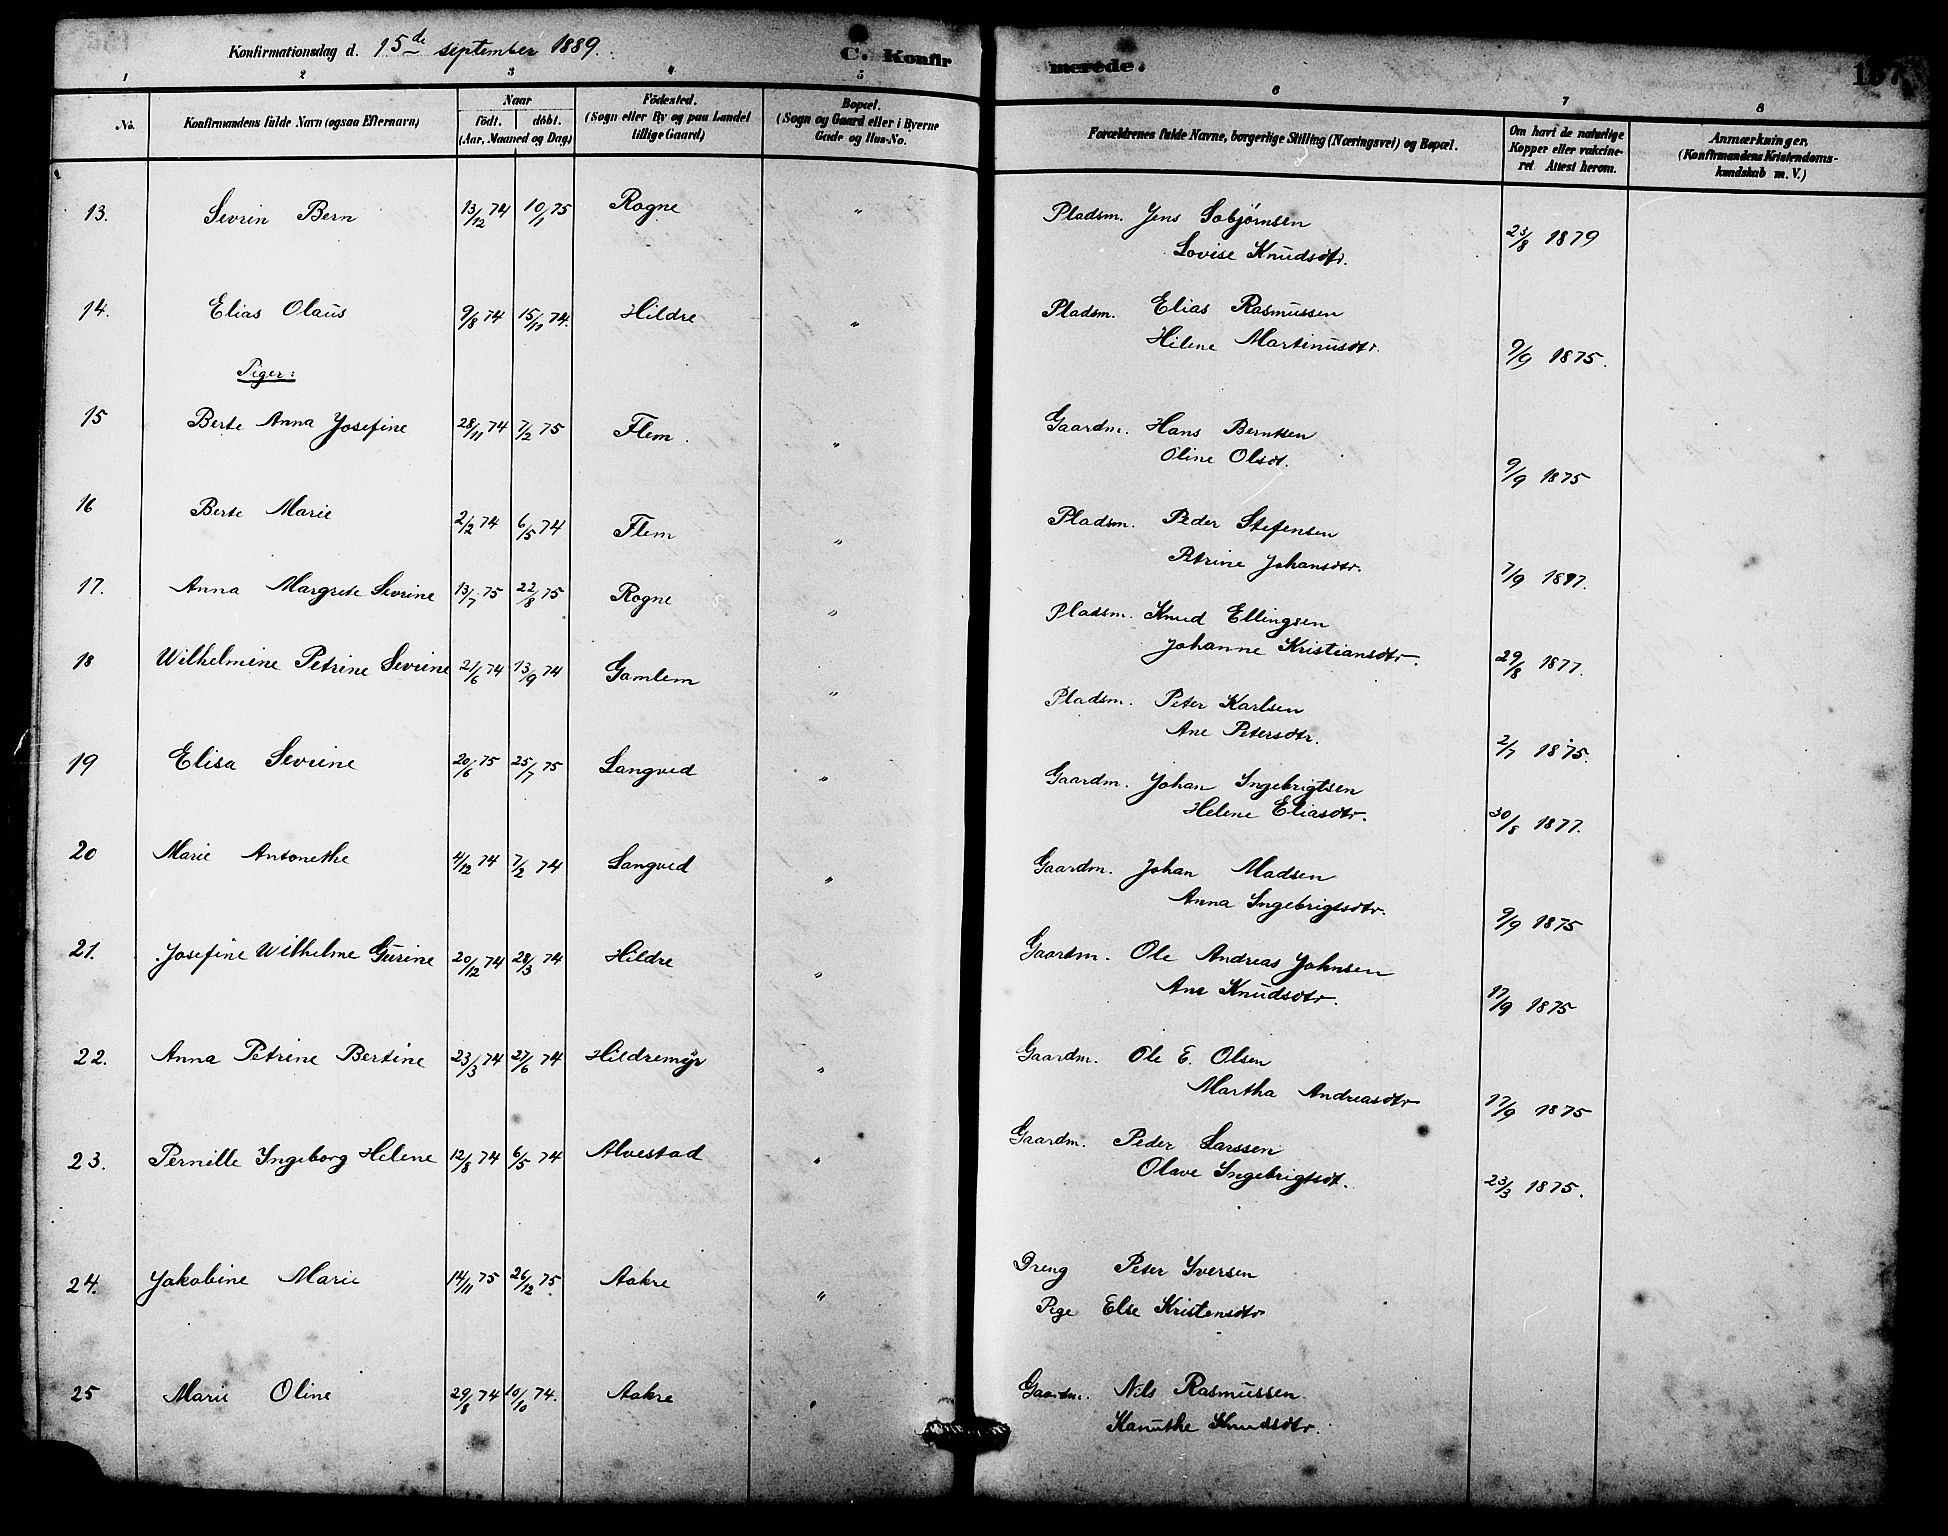 Konfirmationsdag d. 15de september 1889.
C. Konfirmerede.
1 2 3 4 5 6 7 8
No.
Konfirmandens fulde Navn (ogsaa Efternavn)
Naar
födt. döbt.
(Aar, Maaned og Dag)
Födested.
(Sogn eller By og paa Landet
tillige Gaard)
Bopæl.
(Sogn og Gaard eller i Byerne
Gade og Hus-No.
Forældrenes fulde Navne, borgerlige Stilling (Næringsvei) og Bopæl.
Om havt de naturlige
Kopper eller vakcine-
ret Attest herom.
Anmærkninger.
(Konfirmandens Kristendoms-
kundskab m. V.)
13. Sevrin Bern 13/12 74 10/1 75 Rogne " Pladsm. Jens Sobjørnsen
Lovise Knudsdtr. 23/8 1879
14. Elias Olaus 9/8 74 15/11 74. Hildre " Pladsm. Elias Rasmussen
Hilene Martinusdtr. 9/9 1875.
Piger:
15 Berte Anna Josefine 28/11 74 7/2 75 Flem. " Gaardm. Hans Berntsen
Oline Olsdt. 9/9 1875
16 Berte Marie 2/2 74 6/5 74 Flem " Pladsm. Peder Stefensen
Petrine Johansdtr. 7/9
17. Anna Margrete Sevrine 13/7 75 22/8 75 Rogne " Pladsm. Knud Ellingsen
Johanne Kristiansdtr. 29/8 1877.
18 Wilhelmine Petrine Sevrine 2/6 74 13/9 74 Gamlem " Pladsm. Peter Karlsen
Ane Petersdtr. 2/7 1875.
19 Elisa Sevrine 20/6 75 25/7 75 Langved " Gaardm. Johan Ingebrigtsen
Helene Eliasdtr. 30/8 1877.
20 Marie Antonethe 4/12 74 7/2 74 Langved " Gaardm. Johan Madsen
Anna Ingebrigtsdtr. 9/9 1875
21. Josefine Wilhelme Gurine 20/12 74 28/3 74 Hildre " Gaardm. Ole Andreas Johnsen
Ane Knudsdtr. 17/9 1875
22. Anna Petrine Bertine 23/3 74 27/6 74 Hildremyr " Gaardm. Ole E. Olsen
Martha Andreasdtr 17/9 1875
23. Pernille Ingeborg Helene 12/8 74 6/5 74 Alvestad " Gaardm. Peder Larssen
Olave Ingebrigtsdt. 23/3 1875.
24. Jakobine Marie 14/11 75 26/12 75 Aakre " Dreng Peter Iversen
Pige Else Kristensdtr
25 Marie Oline 29/8 74 10/10 74. Aakre " Gaardm. Nils Rasmussen
Kanuthe Knudsdtr.